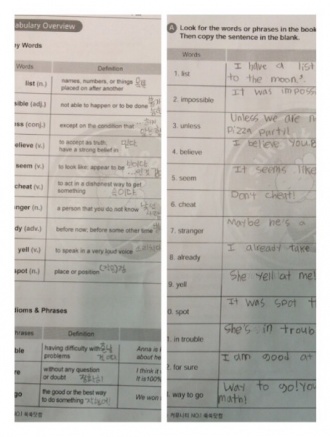 abulary Overview
ey Words
Words
Definition
list (n.)
names, numbers, or things
placed on after another
sible (adj.)
not able to happen or to be done
ss (conj.)
except on the condition that
elieve (v.)
to accept as truth;
have a strong belief in
seem (v.)
to look like; appear to be
cheat (v.)
to act in a dishonest way to get
something
nger (n.)
a person that you do not know
dy (adv.)
before now; before some other time
yell (v.)
to speak in a very loud voice
spot (n.)
place or position
tions & Phrases
hrases
Definition
ble
having difficulty with
problems
Anna is
about he
re
without any question
or doubt
I think it
It is100%
go
the good or the best way
to do something
We won
A Look for the words or phrases in the book
Then copy the sentence in the blank.
Words
1. list
I have a list
to the moon.
2. impossible
It was imposs
3. unless
Unless we are
pizza party!
4. believe
I believe
5. seem
It seems like
6. cheat
Don't cheat!
7. stranger
Maybe he's a
8. already
I already take
9. yell
She yell at me!
0. spot
It was spot t
1. in trouble
She's in troub
2. for sure
I am good at
3. way to go
Way to go! Yo
math!